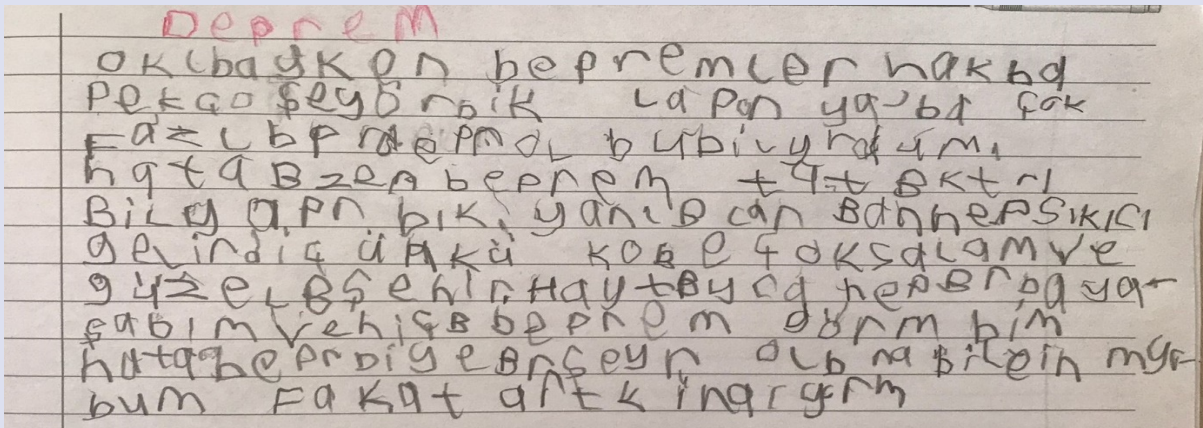 Deprem
okLbayken bepremLer hakbq
Pekços şeyö rbik Lapon ya-bd çok
FazLbprdepmoL bubiLyrdum.
hata Bzen beprem tat Bktrl
BiLy apn bik, yaniB can Bdnhepsıkıcı
geLirdiç ünkü kobe çoksaLamve
güzeLBşehir. HaytBycq hepBrbaya-
şabım vehiçB beprem görmbim
hatabeprbiyeBrşeyn oLbnaBiLein myr-
bum Fakat artk inaıyrm